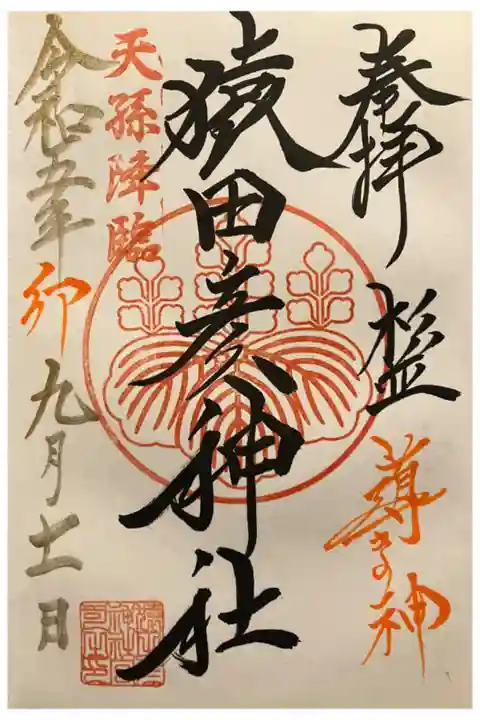 奉拝
杉並
導きの神
猿田彦神社
天孫降臨
令和五年
卯
九月十一日